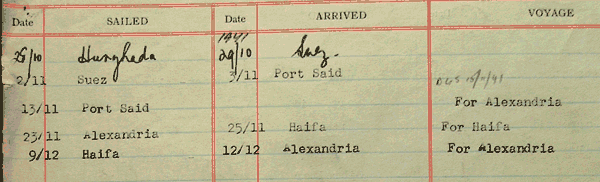 Date SAILED Date ARRIVED VOYAGE
1941
28/10 Hurghada 29/10 Suez.
2/11 Suez 3/11 Port Said
13/11 Port Said For Alexandria
23/11 Alexandria 25/11 Haifa For Haifa
9/12 Haifa 12/12 Alexandria For Alexandria